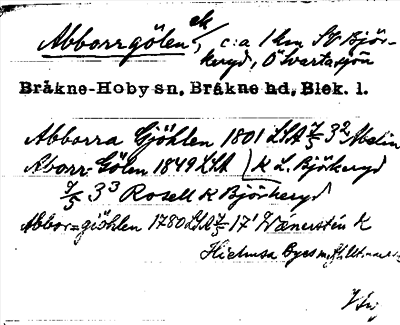 Abborrgölen ek/, c:a 1 km SV Björ-
keryd, Ö Svartasjön
Bråkne-Hoby sn, Bråkne hd, Blek. l.
Abborra Gjöhlen 1801 LSA 7/5 3² Abelin
Aborr-Gölen 1849 LSA K L. Björkeryd
7/5 3³ Rosell K Björkeryd
Abbor=giöhlen 1780 LSA 7/5 17¹ Wænerstén K
Hielmsa Byes